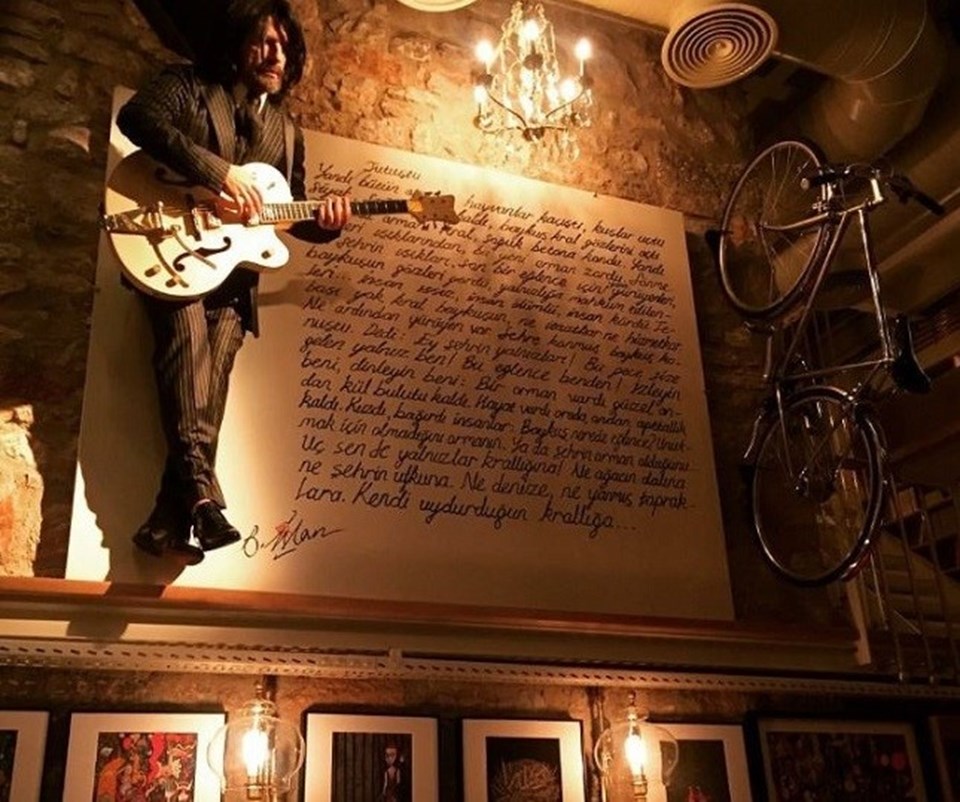 Tutuştu
Yandı bütün hayvanlar kaçıştı, kuşlar uçtu
Siyah kaldı, baykuş kral gözlerini açtı
orman kral, soğuk betona kondu. Yandı
ışıklarından, bu yeni orman zordu. Sonra
şehrin ışıkları. San bir eğlence için yürüyenler,
baykuşun gözleri gördü, yalnızlığa mahkum edilen-
leri... insan ıssız, insan ölümlü, insan kördü. Te-
bası yok kral baykuşun, ne avazlar ne hizmetkar
Ne ardından yürüyen var. Şehre konmuş baykuş, ko-
nuştu. Dedi: Ey şehrin yalnızları! Bu gece size
gelen yalnız ben! Bu eğlence benden! İzleyin
beni, dinleyin beni: Bir orman vardı güzel, on-
dan kül bulutu kaldı. Hayat vardı orada, ondan aptallık
kaldı. Kızdı, bağırdı insanlar: Baykuş nerede eğlence? Unut-
mak için olmadığını ormanın. Ya da şehrin orman olduğunu
Uç sen de yalnızlar krallığına! Ne ağacın dalına
ne şehrin ufkuna. Ne denize, ne yanmış toprak-
lara. Kendi uydurduğun krallığa...